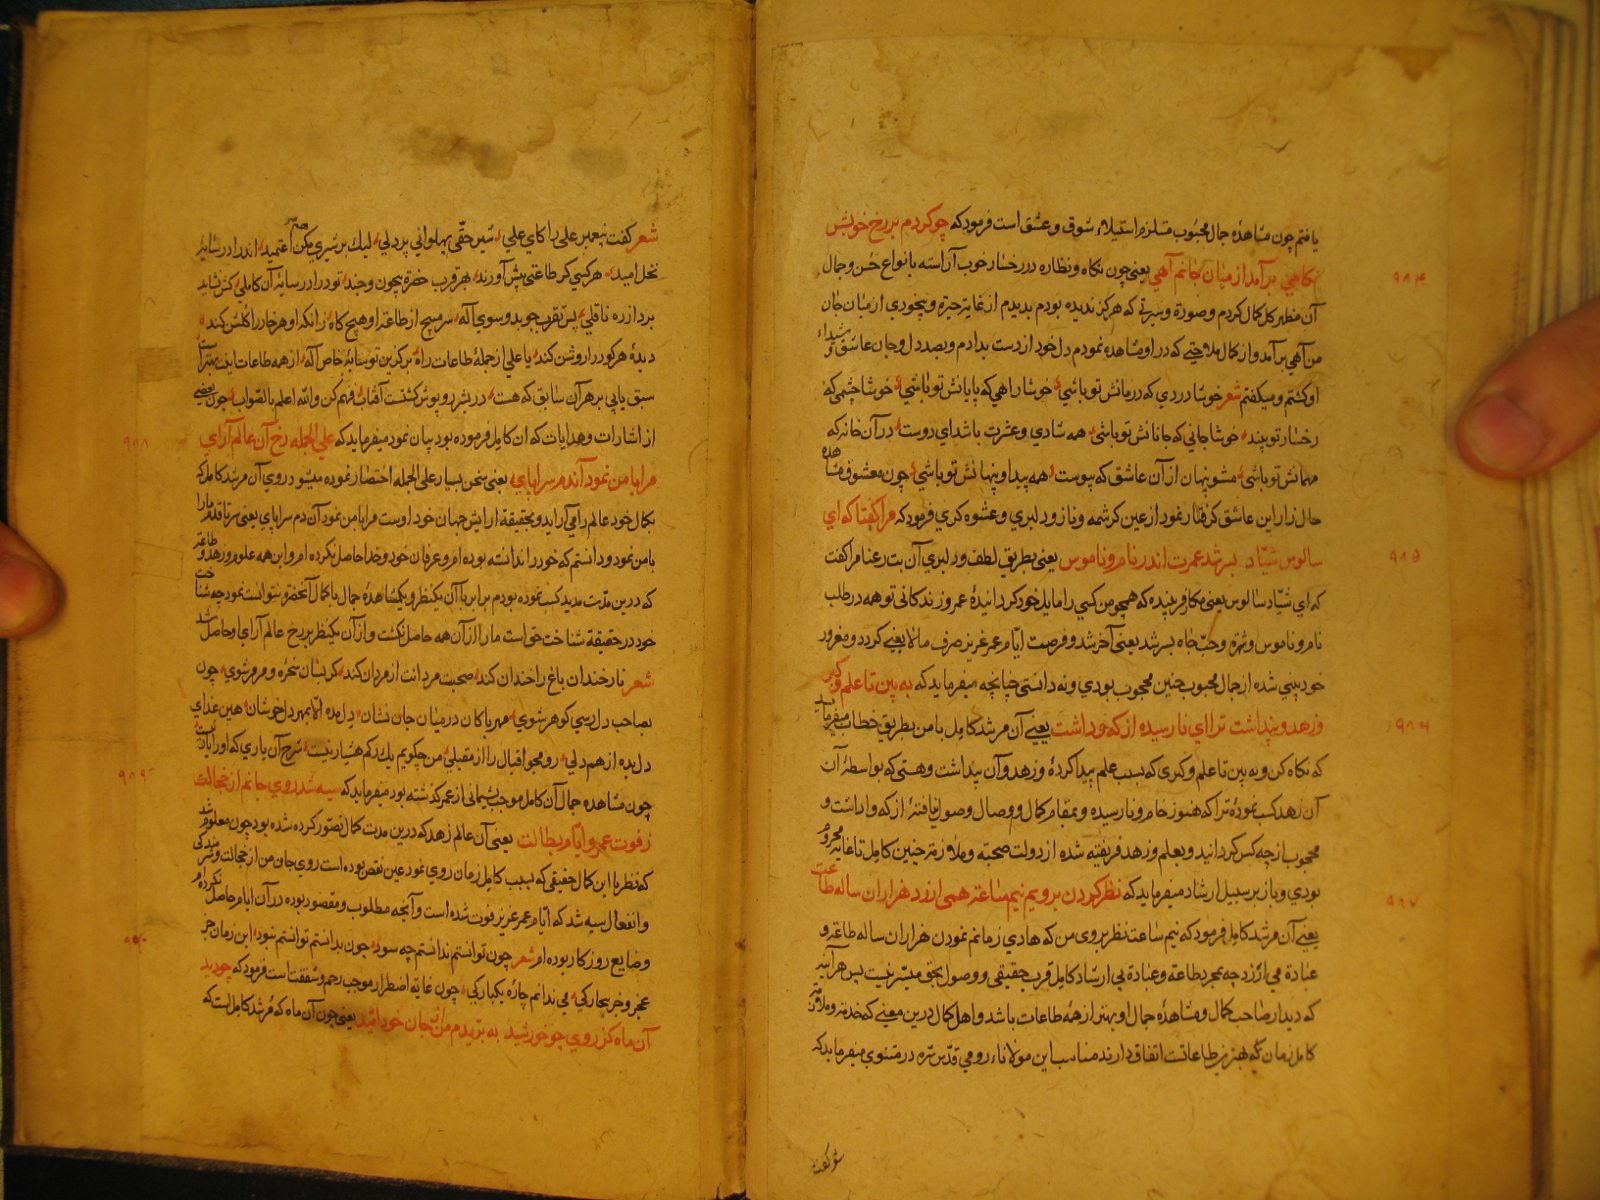 یافتم چون مشاهدهٔ جمال محبوب مستلزم استیلاء شوق و عشق است فرمود که چو کردم بر رخ خوبش
نکاهی برآمد از میان جانم آهی یعنی چون نکاه و نظاره در رخسار خوب آراسته بانواع حسن و جمال
آن مظهر کل کمال کردم و صورة و سیرتی که هرکز ندیده بودم بدیدم از غایة حیرة و بیخودی از میان جان
من آهی برآمد و از کمال ملاحتی که در او مشاهده نمودم دل خود از دست بدادم و بصد دل و جان عاشق و شیداء
او کشتم و میکفتم شعر خوشا دردی که درمانش تو باشی خوشا راهی که پایانش تو باشی خوشا چشمی که
رخسار تو بیند خوشا جانی که جانانش تو باشی همه شادی و عشرت باشد ای دوست در آن خانه که
مهمانش تو باشی مشو پنهان از آن عاشق که پیوست همه پیدا و پنهانش تو باشی چون معشوق مشاهده
حال زار این عاشق کرفتار نمود از عین کرشمه و ناز و دلبری و عشوه کری فرمود که مرا کفتا که ای
سالوس شیاد بسر شد عمرت اندر نام و ناموس یعنی بطریق لطف و دلبری آن بت رعنا مرا کفت
که ای شیاد سالوس یعنی مکار فریبنده که همچو من کسی را مایل خود کردانیدهٔ عمر و زندکانی تو همه در طلب
نام و ناموس و شهرة و حبّ جاه بسر شد یعنی آخر شد و فرصت ایام عمر عزیز صرف ما لا یعنی کردد و مغرور
خودبینی شده از جمال محبوب چنین محجوب بودی و نه دانستی چنانچه میفرماید که به بین تا علم و کبر
و زهد و پنداشت ترا ای نارسیده از که واداشت یعنی آن مرشد کامل با من بطریق خطاب میفرماید
که نکاه کن و به بین تا علم و کبری که بسبب علم پیدا کردهٔ و زهد و آن پنداشت و هستی که بواسطهٔ آن
آن زهد کسب نمودهٔ ترا که هنوز خام و نارسیده و بمقام کمال و وصال و وصول نیافتهٔ از که واداشت و
محجوب از چه کس کردانید و بعلم و زهد فریفته شده از دولت صحبة و ملازمة چنین کامل تا غایة محروم
بودی و باز بر سبیل ارشاد میفرماید که نظر کردن برویم نیم ساعة همی ارزد هزاران ساله طاعت
یعنی آن مرشد کامل فرمود که نیم ساعت نظر بروی من که هادی زمانم نمودن هزاران ساله طاعة و
عبادة می ارزد چه بمجرد طاعة و عبادة بی ارشاد کامل قرب حقیقی و وصول بحق میسر نیست پس هر آینه
که دیدار صاحب کمال و مشاهدهٔ جمال او بهتر از همه طاعات باشد و اهل کمال درین معنی که خدمة و ملازمة
کامل زمان که بهترین طاعاتست اتفاق دارند مناسب این مولاناء رومی قدّس سرّه در مثنوی میفرماید که
شعر کفت
۹۸۴
۹۸۵
۹۸۶
۹۸۷
شعر کفت پیغمبر علی را کای علی شیر حقّی پهلوانی پردلی لیک بر شیری مکن هم اعتمید اندرا در سایهٔ
نخل امید هر کسی کر طاعتی پیش آورند بهر قرب حضرة بیچون و چند تو درا در سایهٔ آن کاملی کش نشاید
برد از ره ناقلی پس تقرب جو بدو سوی آله سر مپیچ از طاعة او هیچ کاه زانکه او هر خار را کلشن کند
دیدهٔ هر کور را روشن کند یا علی از جملهٔ طاعات راه برکزین تو سایهٔ خاص آله از همه طاعات اینت بهتر است
سبق یابی بر هر آن سابق که هست در بشر روپوش کشتست آفتاب فهم کن والله اعلم بالصواب چون بعضی
از اشارات و هدایات که ان کامل فرموده بود بیان نمود میفرماید که علی الجمله رخ آن عالم آرای
مرا با من نمود آندم سراپای یعنی سخن بسیار علی الجمله اختصار نموده میشود روی آن مرشد کامل که
بکمال خود عالم را می آراید و بحقیقة آرایش جهان خود اوست مرا با من نمود آن دم سراپای یعنی سر تا قدم مرا
با من نمود و دانستم که خود را ندانسته بوده ام و عرفان خود و خدا حاصل نکرده ام و این همه علوم و زهد و طاعة
که درین مدّت مدید کسب نموده بودم برابر با آن یک نظر و یک مشاهدهٔ جمال با کمال آنحضرة نتوانست نمود چه شناخت
خود در حقیقة شناخت حق است مارا از آن همه حاصل نکشت و از آن یک نظر بر رخ عالم آرای او حاصل شد
شعر نار خندان باغ را خندان کند صحبت مردانت از مردان کند کر بسان صخره و مرمر شوی چون
بصاحب دل رسی کوهر شوی مهر پاکان در میان جان نشان دل مده الّا بمهر دل خوشان هین غذای
دل بده از هم دلی رو بجو اقبال را از مقبلی من چکویم یک رکم هشیار نیست شرح آن یاری که او را یار نیست
چون مشاهده جمال آن کامل موجب پشیمانی از عمر کذشته بود میفرماید که سیه شد روی جانم از خجالت
ز فوت عمر و ایام بطالت یعنی آن عالم زهد که درین مدت کمال تصوّر کرده شده بود چون معلوم شد
که نظر با این کمال حقیقی که بسبب کامل زمان روی نمود عین نقص بوده است روی جان من از خجالت و شرمندکی
و انفعال سیه شد که ایام عمر عزیز فوت شده است و آنچه مطلوب و مقصود بوده در آن ایام حاصل نکرده ام
و ضایع روزکار بوده ام شعر چون توانستم ندانستم چه سود چون بدانستم توانستم نبود این زمان جز
عجز و جز بیچارکی می ندانم چارهٔ یکبارکی چون غایة اضطرار موجب رحم و شفقتست فرمود که چو دید
آن ماه کز روی چو خورشید به بریدم من از جان خود امید یعنی چون آن ماه که مرشد کامل است که
۹۸۸
۹۸۹
۹۹۰